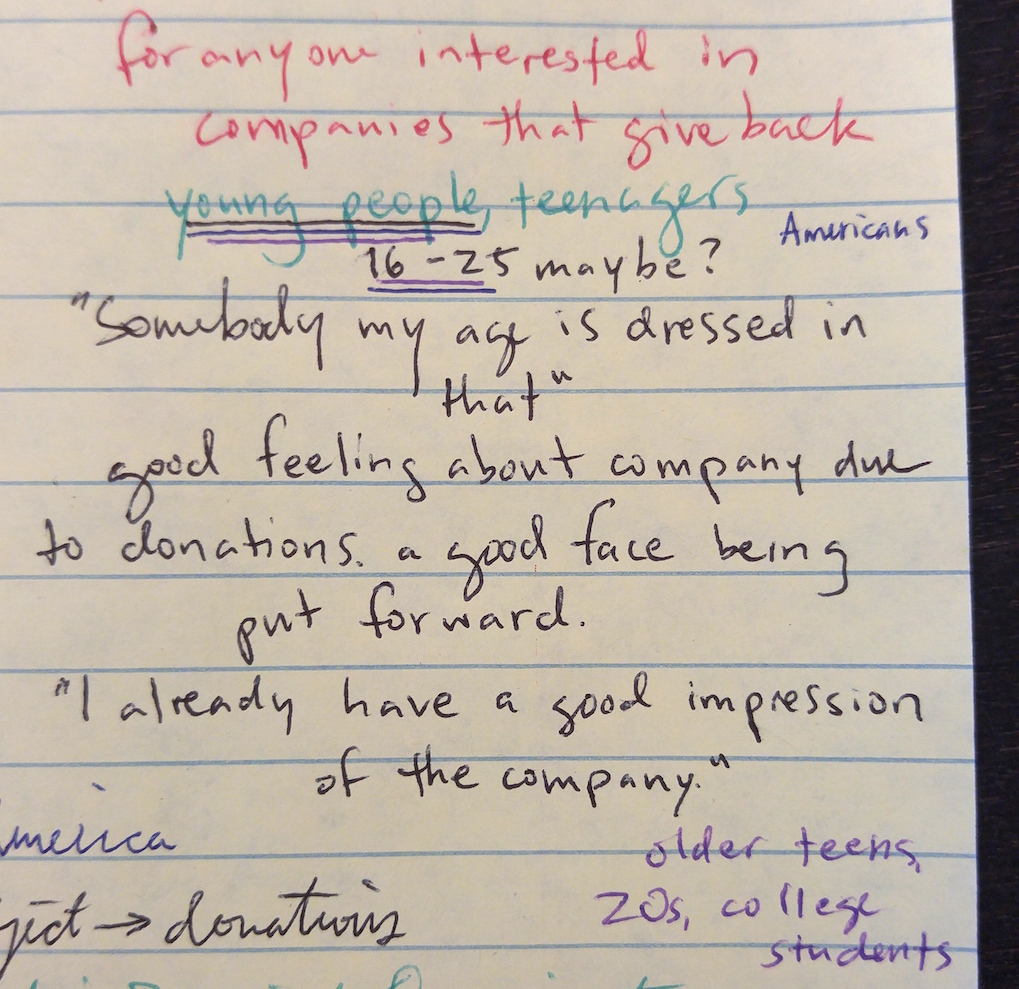 for anyone interested in
companies that give back
young people, teenagers
Americans
16-25 maybe?
"Somebody my age is dressed in
that"
good feeling about company due
to donations. a good face being
put forward.
"I already have a good impression
of the company."
merica
older teens,
→ donations
20s, college
students